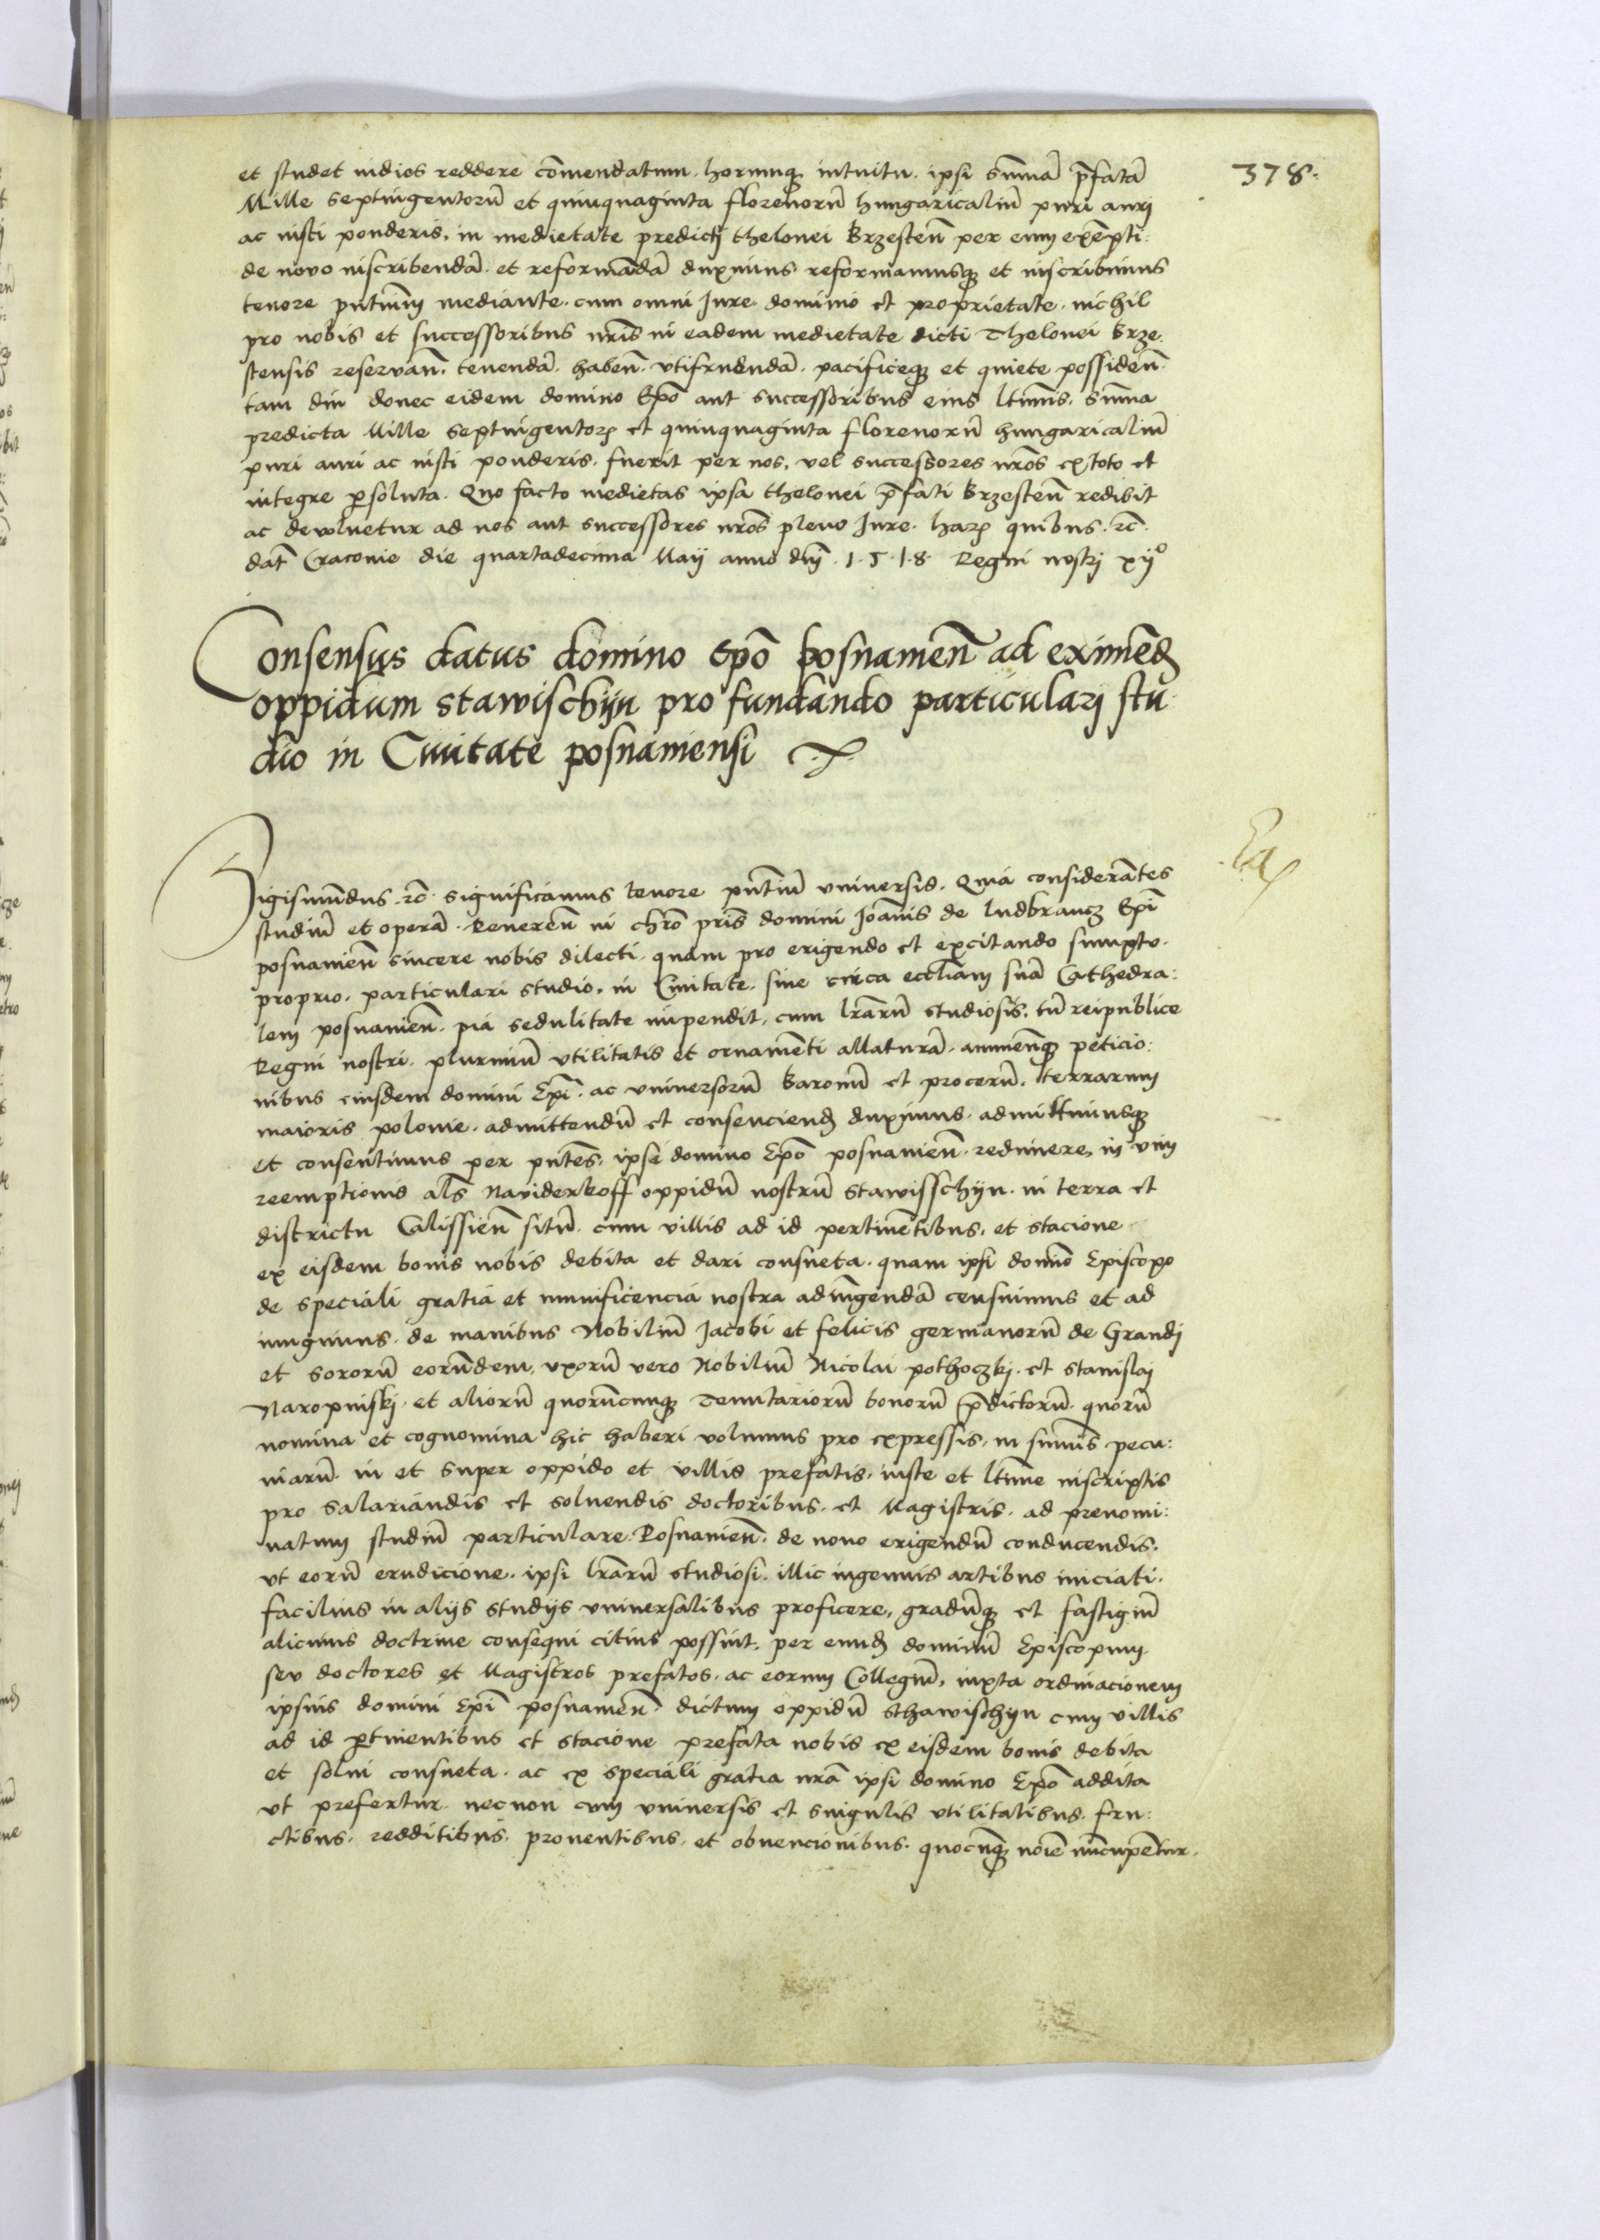 378.
et studet indies reddere com̄endatum. horumqꝫ intuitu. ipsi sum̄ā p̄fatā
Mille septingentorū et quinquaginta florenorū hungaricaliū puri auri
ac iusti ponderis, in medietate predicti thelonei Brzesten̄ per eum exēpti:
de novo inscribendā. et reformādā duximus reformamusqꝫ et inscribimus
tenore pn̄tium mediante. cum omni Jure. dominio et proprietate. nichil
pro nobis et successoribus nr̄is in eadem medietate dicti Thelonei Brze:
stensis reservan̄. tenendā. haben̄. utifruendā. pacificeqꝫ et quiete possiden̄.
tam diu donec eidem domino Ep̄o aut successoribus eius ltīmis. sum̄a
predicta Mille Septingentoꝝ et quinquaginta florenorū hungaricaliū
puri auri ac iusti ponderis. fuerit per nos, vel successores nr̄os ex toto et
integre ꝑsoluta. Quo facto medietas ipsa thelonei p̄fati Brzesten̄ redibit
ac devoluetur ad nos aut successores nr̄os pleno Jure. haꝝ quibus. rc̄.
dat̄ Cracovie die quartadecima Maij anno dn̄j. 1.5.1.8. Regni nostrj xijº
Consensus datus domino Ep̄o posnanien̄ ad eximēd
oppidum stawischÿn pro fundando particularj stu
dio in Civitate posnaniensi
Sigismūdus. rc̄. significamus tenore pn̄tiū universis. Quia considerātes
studiū et operā. Reveren̄ in chr̄o pr̄is domini Joānis de ludbrancz Ep̄i
posnanien̄ sincere nobis dilecti. quam pro erigendo et excitando sumptu.
proprio. particulari studio. in Civitate. sive circa eccl̄iam suā Cathedra:
lem posnanien̄. pia sedulitate impendit, cum lr̄arū studiosis. tū reipublice
Regni nostri. plurimū utilitatis et ornamēti allaturā. annuen̄qꝫ peticio:
nibus eiusdem domini Ep̄i. ac universorū Baronū et procerū. terrarum
maioris polonie. admittendū et consenciend̄ duximus. admittimusqꝫ
et consentimus per pn̄tes. ipsi domino Ep̄o posnanien̄. redimere, in vim
reemptionis al̄s Naviderkoff oppidū nostrū Stawisschÿn. in terra et
districtu Calissien̄ sitū. cum villis ad id pertinētibus, et stacione
ex eisdem bonis nobis debita et dari consueta. quam ipsi domīo Episcopo
de speciali gratia et munificencia nostra adiūgendā censuimus et ad
iungimus. de manibus Nobiliū Jacobi et felicis germanorū de Grandj
et sororū eorūndem, uxorū vero Nobiliū Nicolai pothoczkj. et stanislaj
Naropinskj. et aliorū quorūcumqꝫ Tenutariorū bonorū p̄dictorū. quorū
nomina et cognomina hic haberi volumus pro expressis. in sum̄is pecu:
niarū. in et super oppido et villis prefatis. iuste et ltīme inscriptis
pro salariandis et soluendis doctoribus. et Magistris. ad prenomi:
natum studiū particulare Posnanien̄. de novo erigendū conducendis.
ut eorū erudicione. ipsi lr̄arū studiosi. illic ingenuis artibus iniciati.
facilius in alijs studijs universalibus proficere, gradūqꝫ et fastigiū
alicuius doctrine consequi citius possint. per eund̄ dominū Episcopum
seu doctores et Magistros prefatos. ac eorum Collegiū, iuxta ordinacionem
ipsius domini Ep̄i posnanien̄ dictum oppidū sthawischÿn cum villis
ad id ꝑtinentibus et stacione prefata nobis ex eisdem bonis debita
et solui consueta. ac ex speciali gratia nr̄a ipsi domino Ep̄o addita
ut prefertur. necnon cum universis et singulis utilitatibus, fru:
ctibus. redditibus. proventibus. et obvencionibus. quocūqꝫ noīe nūcupētur.